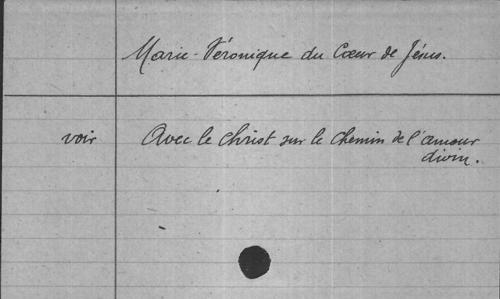 Marie-Véronique du Cœur de Jésus.
voir Avec le Christ sur le chemin de l'amour
divin.